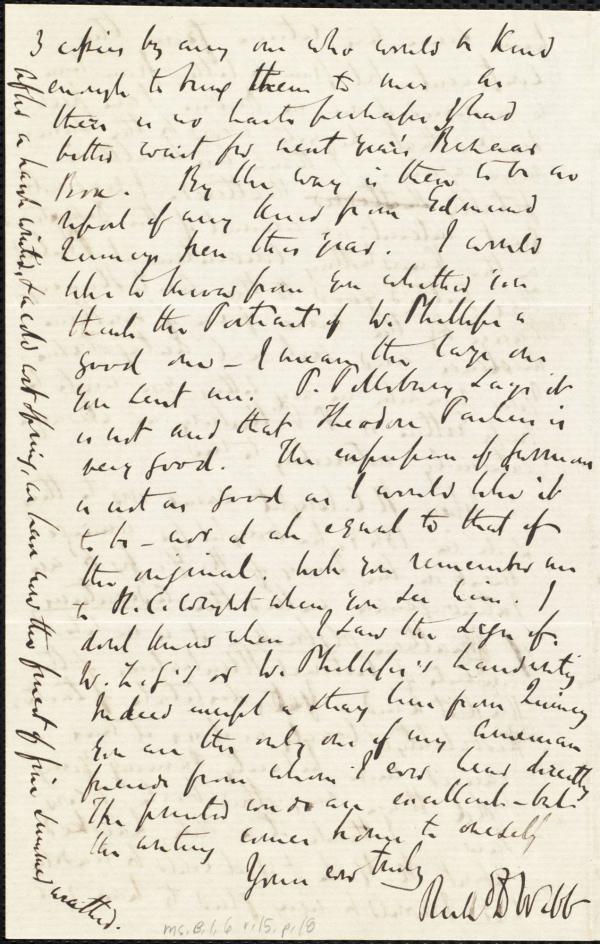 3 copies by any one who would be kind
enough to bring them to me. As
there is no haste perhaps I had
better wait for next year's Bazaar
Box. By the way is there to be no
report of any kind from Edmund
Quincy's pen this year. I would
like to know from you whether you
think the Portrait of W. Phillips a
good one - I mean the large one
you sent me. P. Pillsbury says it
is not and that Theodore Parker is
very good. The expression of
is not as good as I would like it
to be - nor at all equal to that of
the original. Will you remember me
to H. C. Wright when you see him. I
don't know when I saw the sign of
W. L. G's or W. Phillips's handwriting
Indeed except a stray line from Quincy
you are the only one of my American
friends from whom I ever hear directly
The printed words are excellent - but
the writing comes home to oneself
Yours ever truly
Richd D Webb
After a harsh winter, & a cold wet spring, we have now the finest of fine summer weather.
Ms. B. 1. 6 v. 15, p. 18